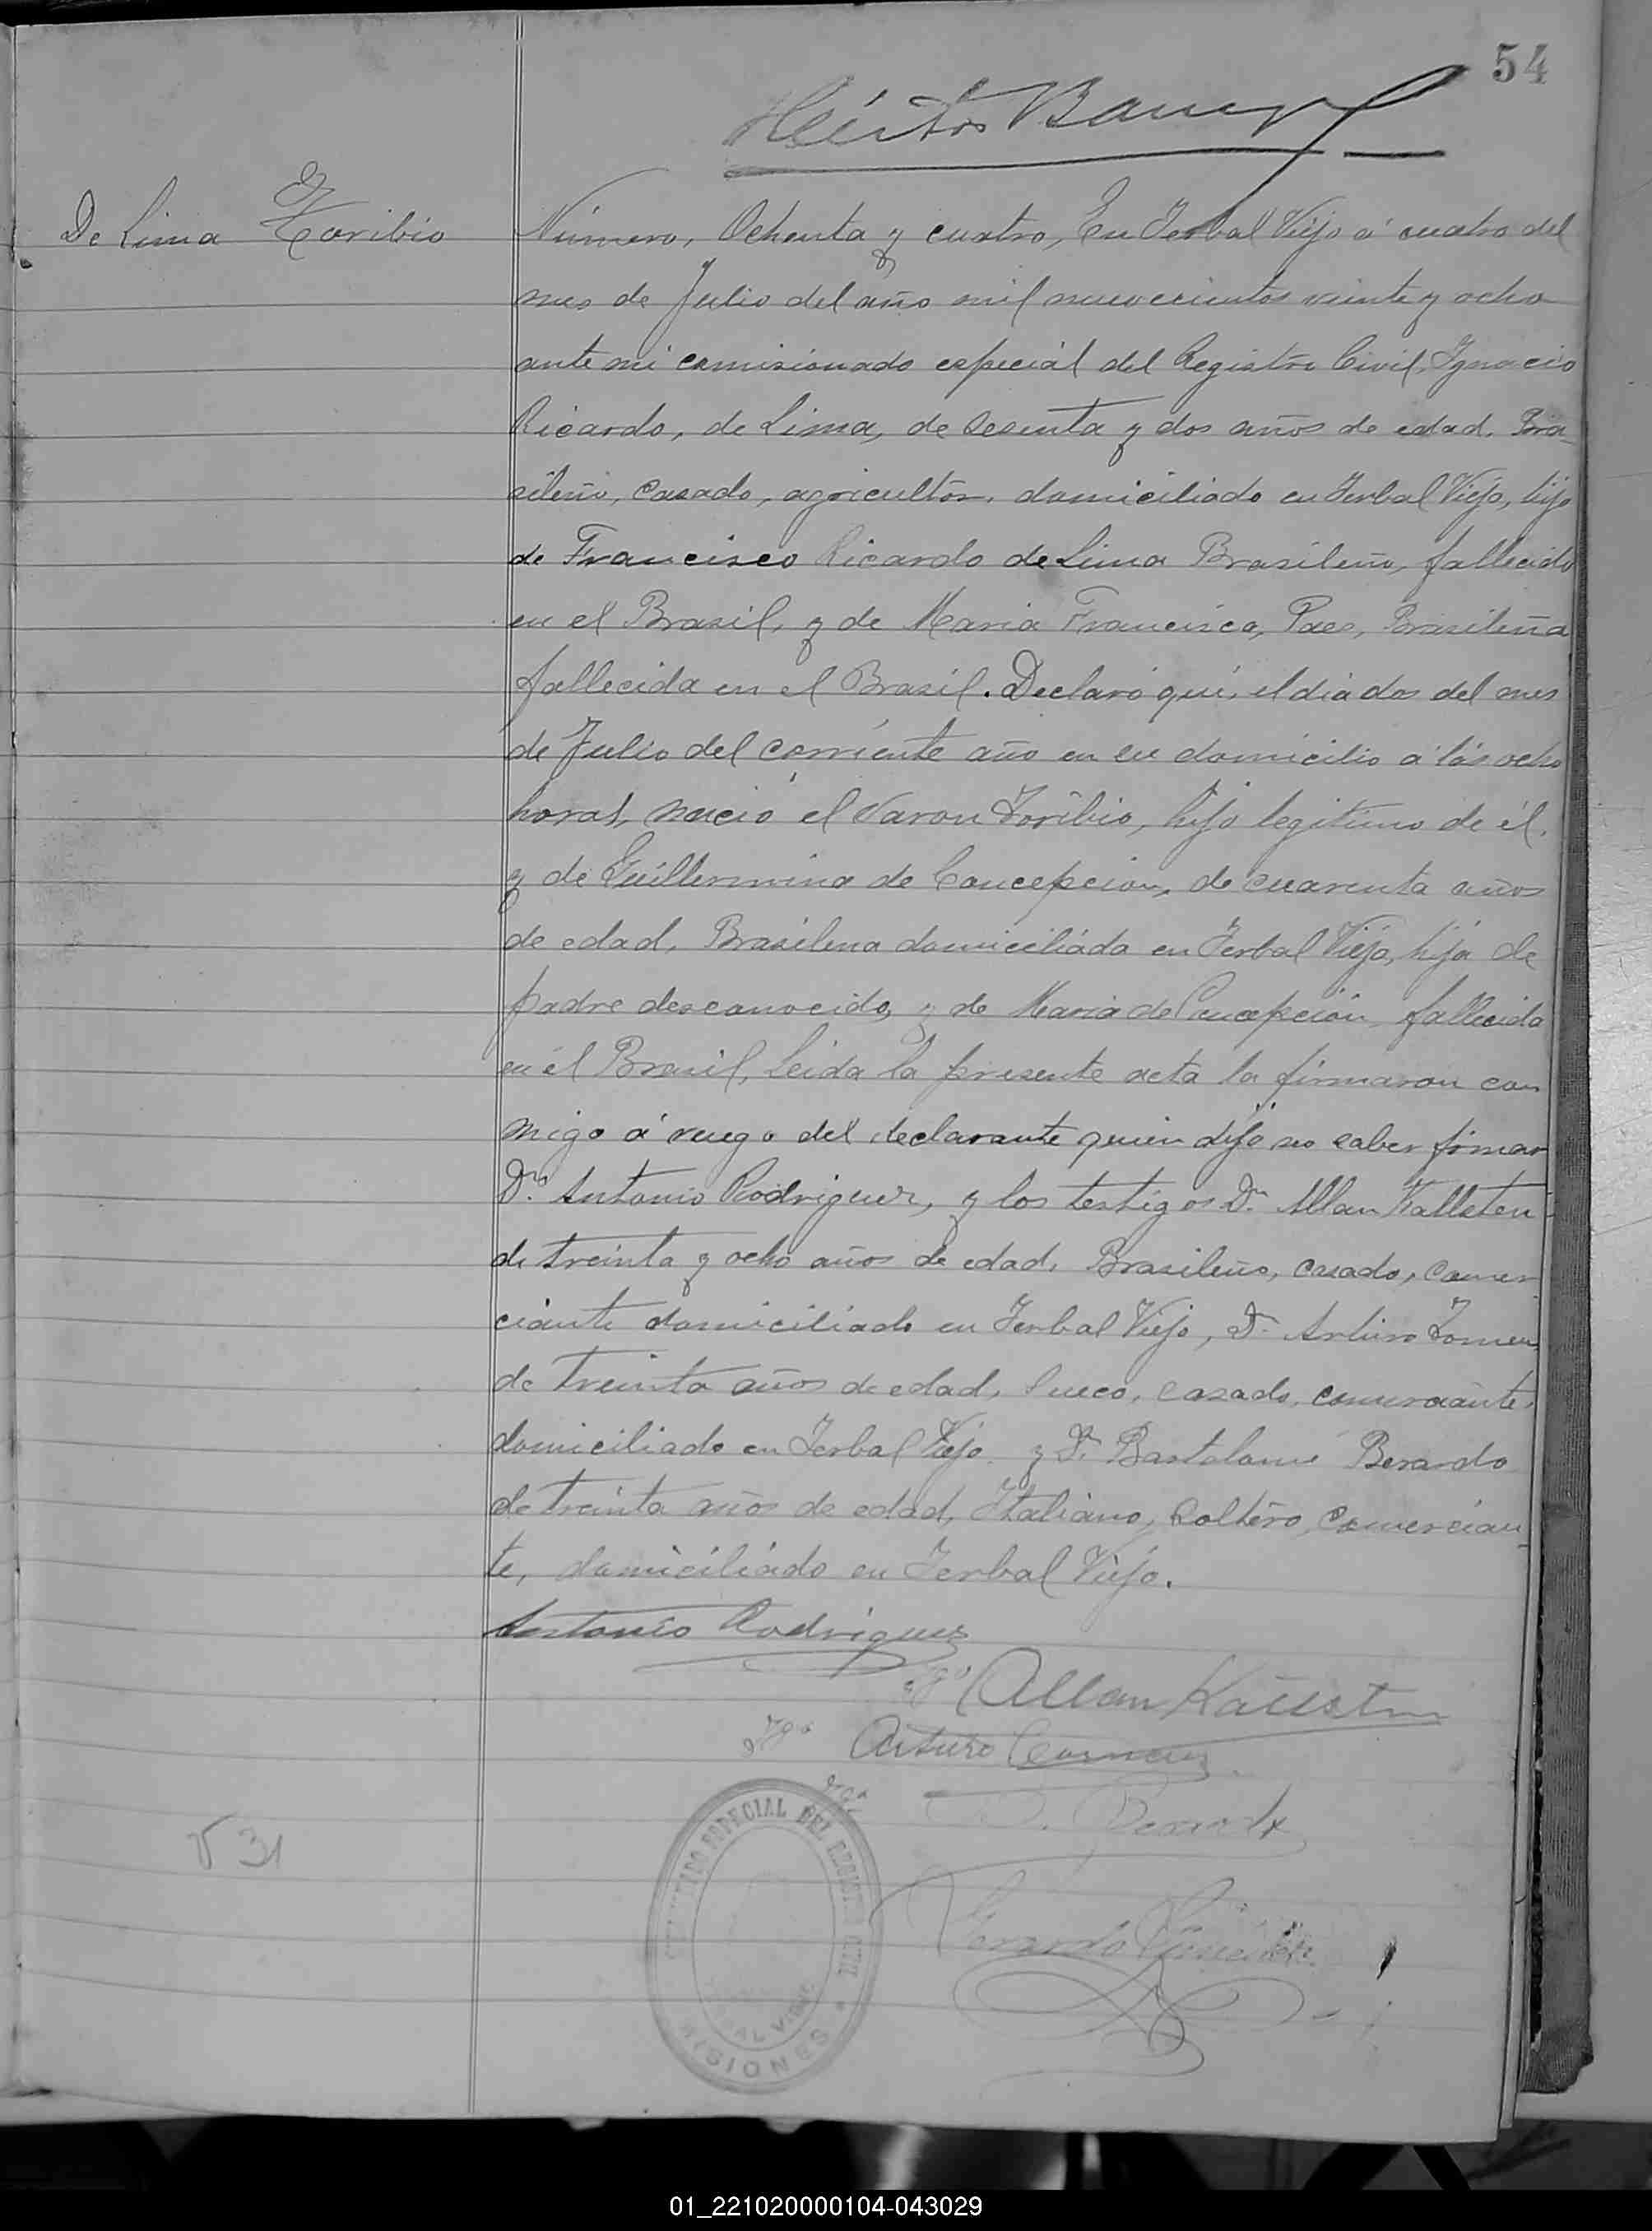 54
Héctor
De Lima Toribio
Número, Ochenta y cuatro, En Yerbal Viejo á cuatro del
mes de Julio del año mil nuevecientos veinte y ocho
ante mi comisionado especiál del Registro Civil, Ygnacio
Ricardo, de Lima, de Sesenta y dos años de edad, Bra-
sileño, casado, agricultor, domiciliado en Yerbal Viejo, hijo
de Francisco Ricardo de Lima Brasileño, fallecido
en el Brasil, y de Maria Francisca, Paes, Brasileña
fallecida en el Brasil. Declaró qué, el día dos del mes
de Julio del corriente año en su domicilio a las ocho
horas, nació el Varon Toribio, hijo legitimo de él,
y de Guillermina de Concepcion, de cuarenta años
de edad, Brasilena domiciliada en Yerbal Viejo, hija de
padre desconocido, y de Maria de Concepción fallecida
en él Brasil, Leida la presente acta la firmaron con
migo á ruego del declarante quien dijo no saber firmar
Dn. Antonio Rodriguez, y los testigos Dn. Allan Kallsten
de treinta y ocho años de edad, Brasileño, casado, comer-
ciante domiciliado en Yerbal Viejo, Dn. Arturo
de treinta años de edad, Sueco, casado, comerciante,
domiciliado en Yerbal Viejo y Dn. Bartolomé Berardo
de treinta años de edad, Italiano, soltero, comercian-
te, domiciliado en Yerbal Viejo.
Antonio Rodriguez
tgo Allan Kallsten
tgo Arturo
tgo B. Berardo
Gerardo
COMISIONADO ESPECIAL DEL REGISTRO CIVIL
YERBAL VIEJO
MISIONES
V 31
01_221020000104-043029